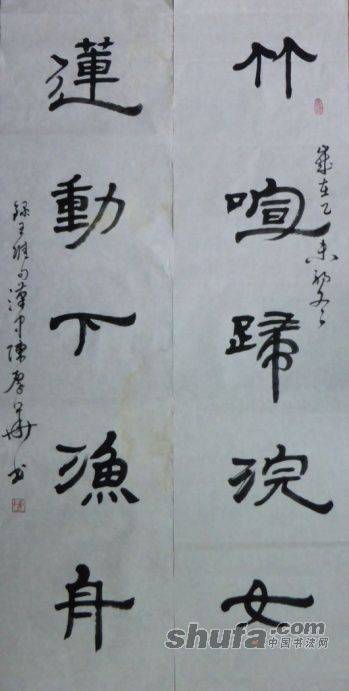 竹喧歸浣女
歲在乙未初冬
蓮動下漁舟
録王維句漢中陳厚華书
shufa.com
中国书法网